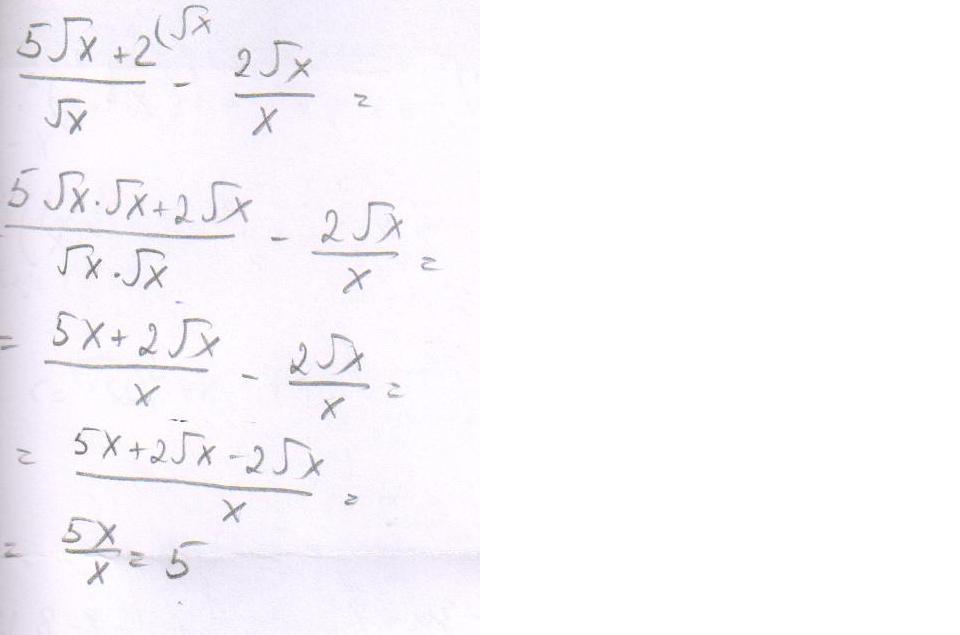 (5√x + 2)/√x ^(√x - 2√x/x =
(5√x·√x + 2√x)/(√x·√x) - 2√x/x =
= (5x + 2√x)/x - 2√x/x =
= (5x + 2√x - 2√x)/x =
= 5x/x = 5